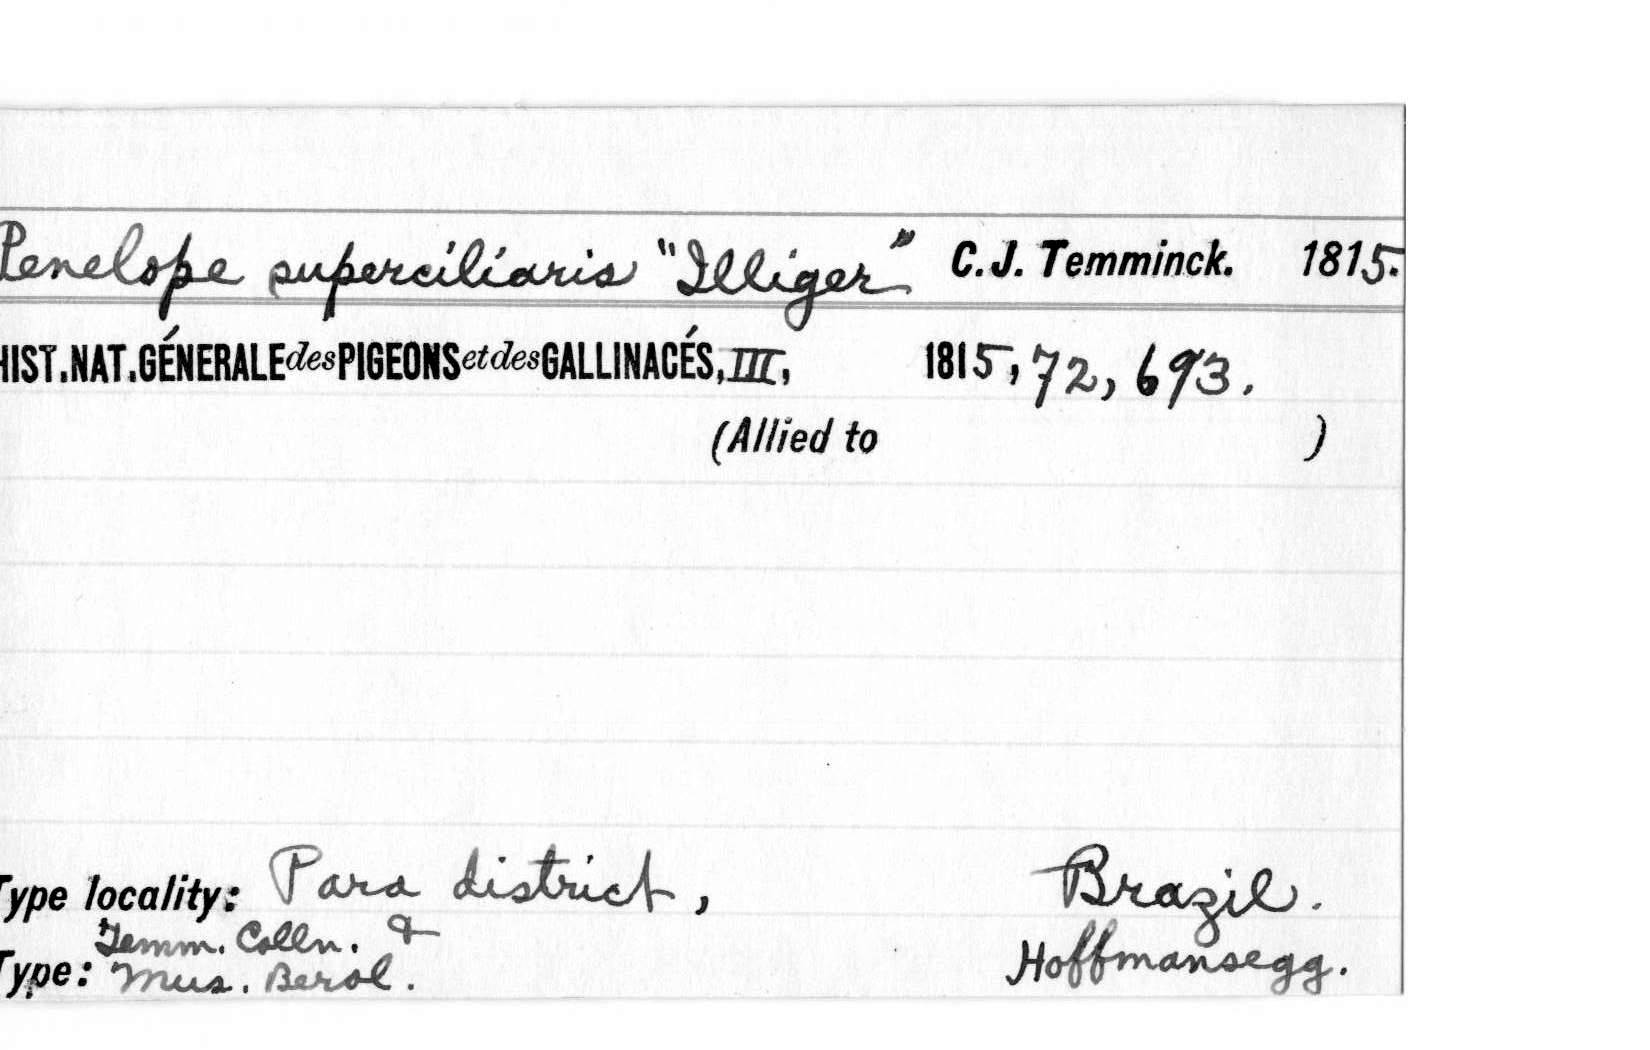 Penelope superciliaris "Illiger" C.J. Temminck. 1815.
HIST.NAT.GÉNERALE des PIGEONS et des GALLINACÉS, III, 1815, 72, 693.
(Allied to )
Type locality: Para district, Brazil.
Temm. Colln. &
Type: Mus. Berol. Hoffmansegg.